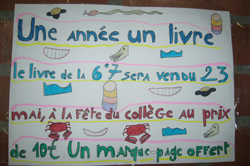 Une année un livre
le livre de la 6°7 sera vendu 23
mai, à la fête du collège au prix
de 10€ Un marque page offert